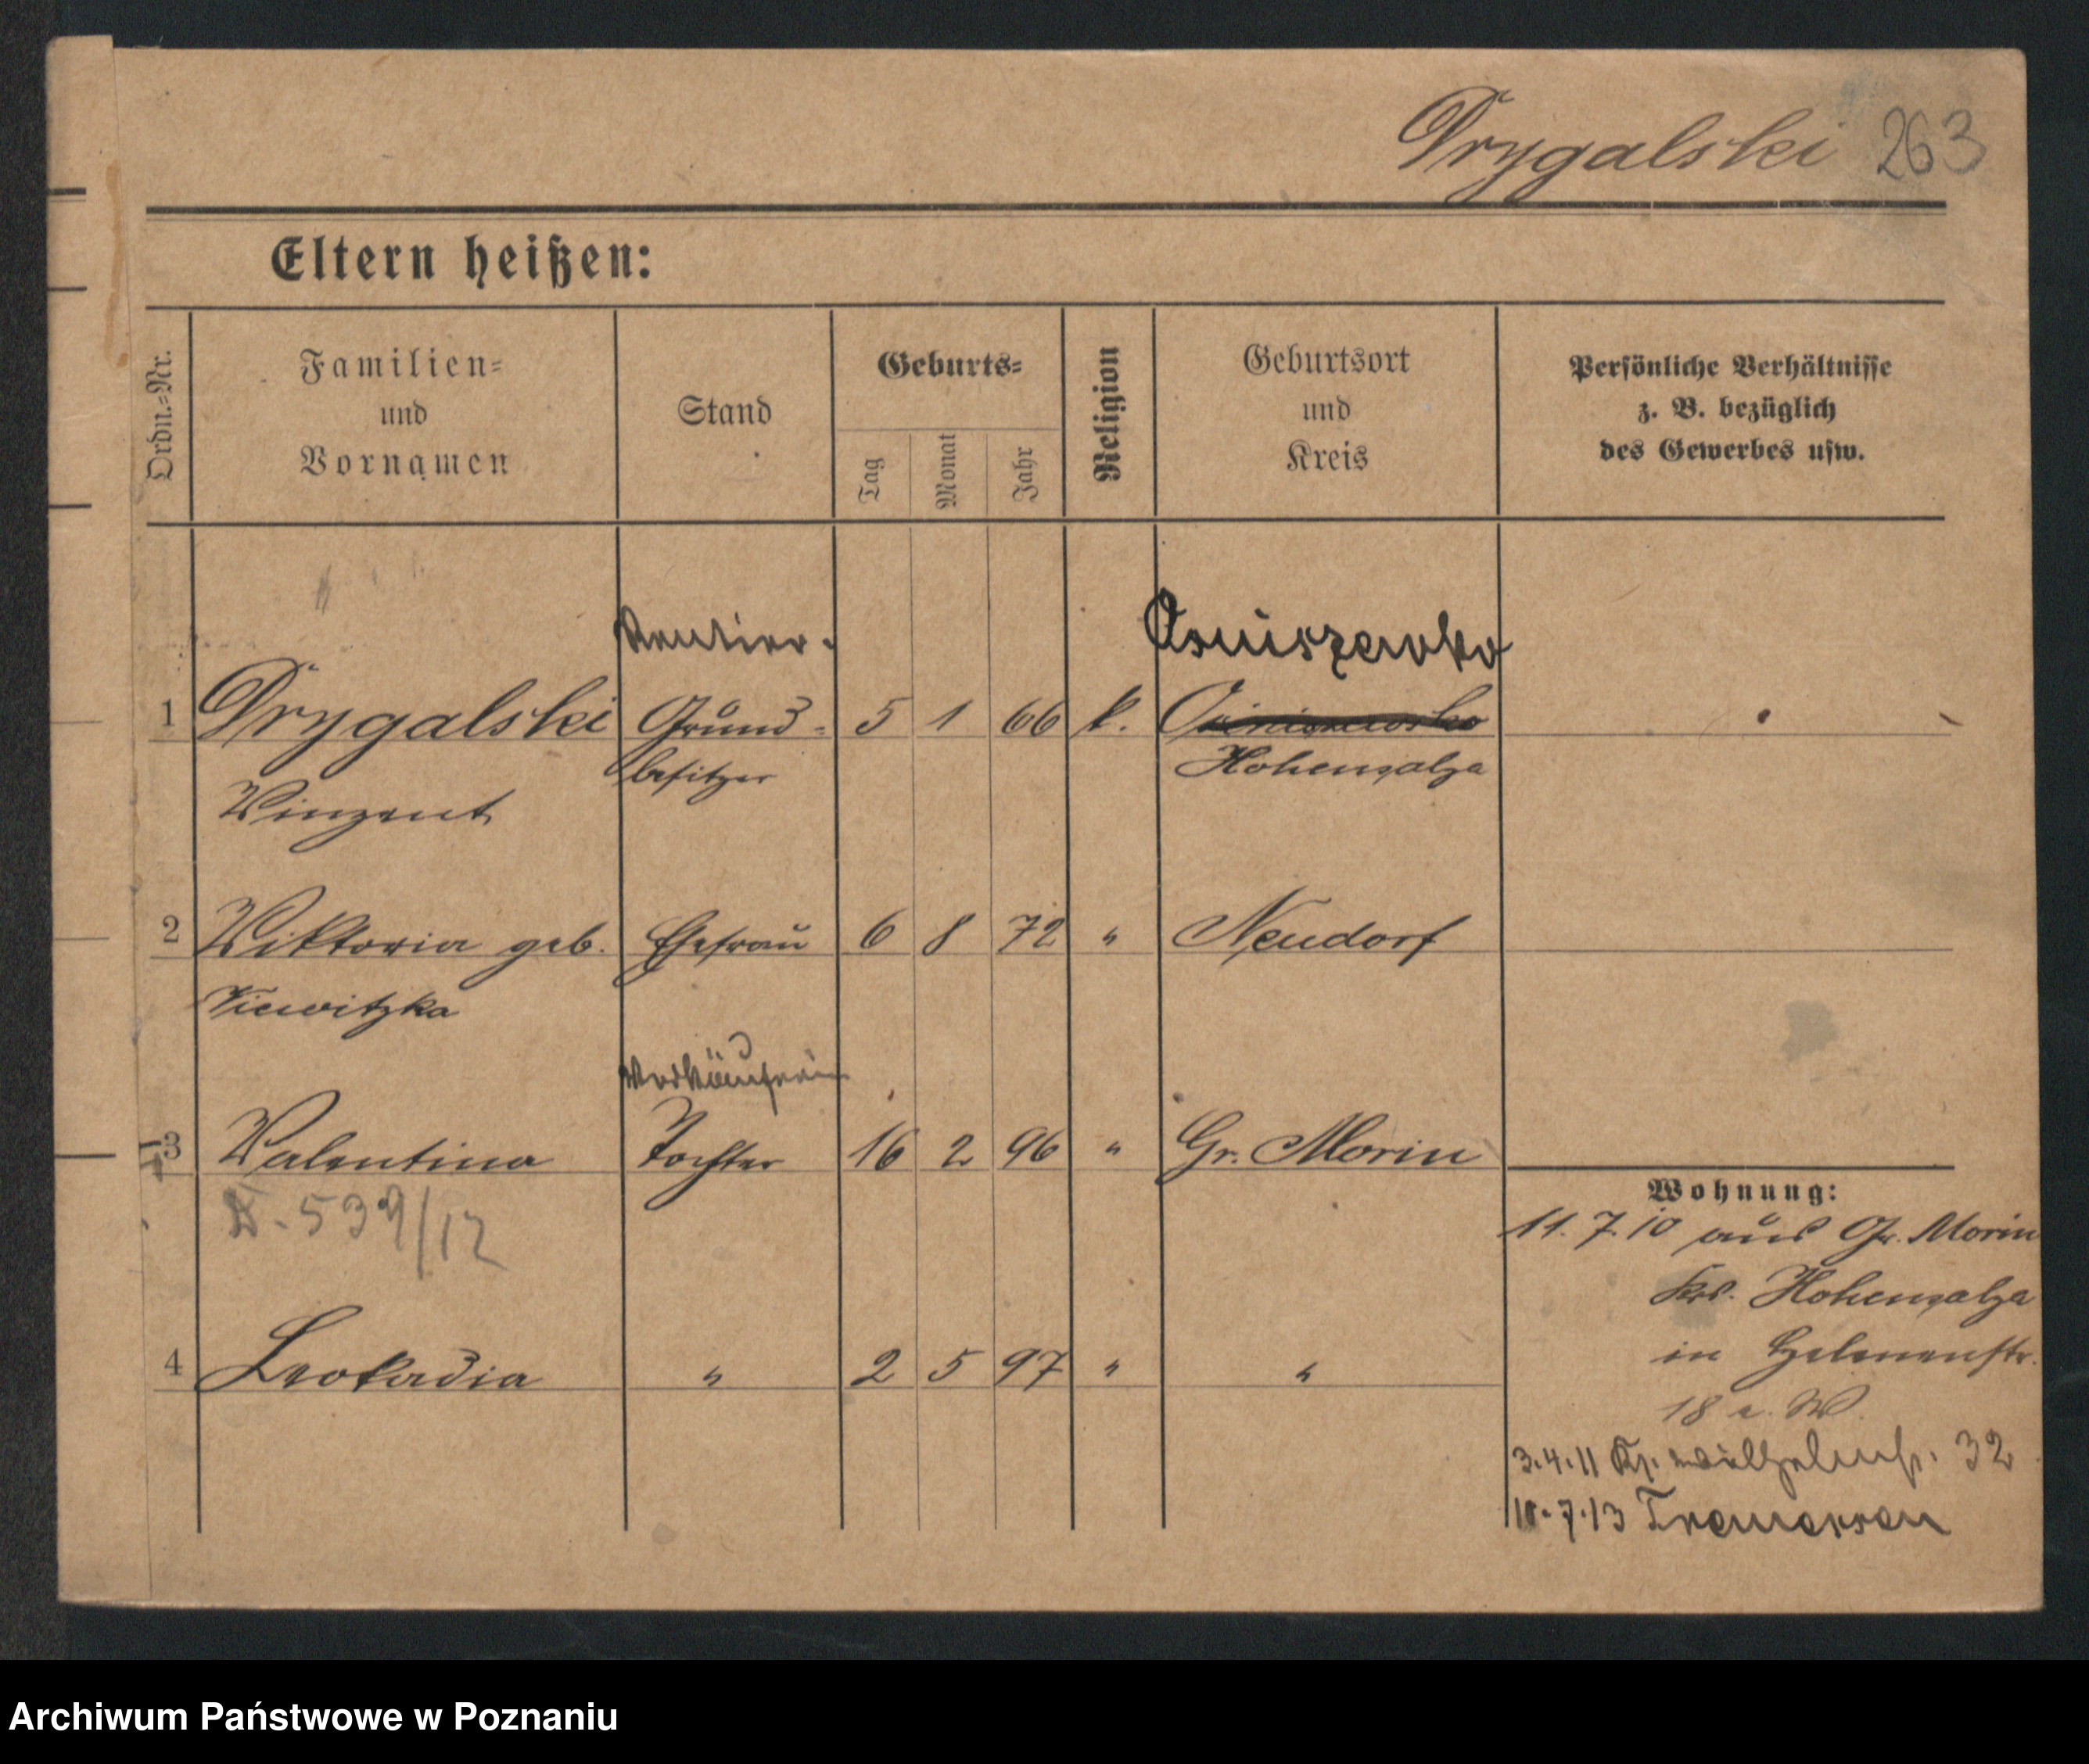 Drygalski 263
Eltern heißen:
Ordn.-Nr.
Familien- und Vornamen
Stand
Geburts-
Tag
Monat
Jahr
Religion
Geburtsort und Kreis
Persönliche Verhältnisse
z. B. bezüglich
des Gewerbes usw.
Rentier.
Osniszewko
1 Drygalski Grund- 5 1 66 k.
besitzer Hohensalza
Winzent
2 Wiktoria geb. Ehefrau 6 8 72 " Neudorf
Verkäuferin
3 Valentina Tochter 16 2 96 " Gr. Morin
539/12
4 Leokadia " 2 5 97 " "
Wohnung:
11.7.10 aus Gr. Morin
Krs. Hohensalza
in
18 a. W.
3.4.11 Kr. Wilhelmstr. 32
10.7.13 Tremessen
Archiwum Państwowe w Poznaniu